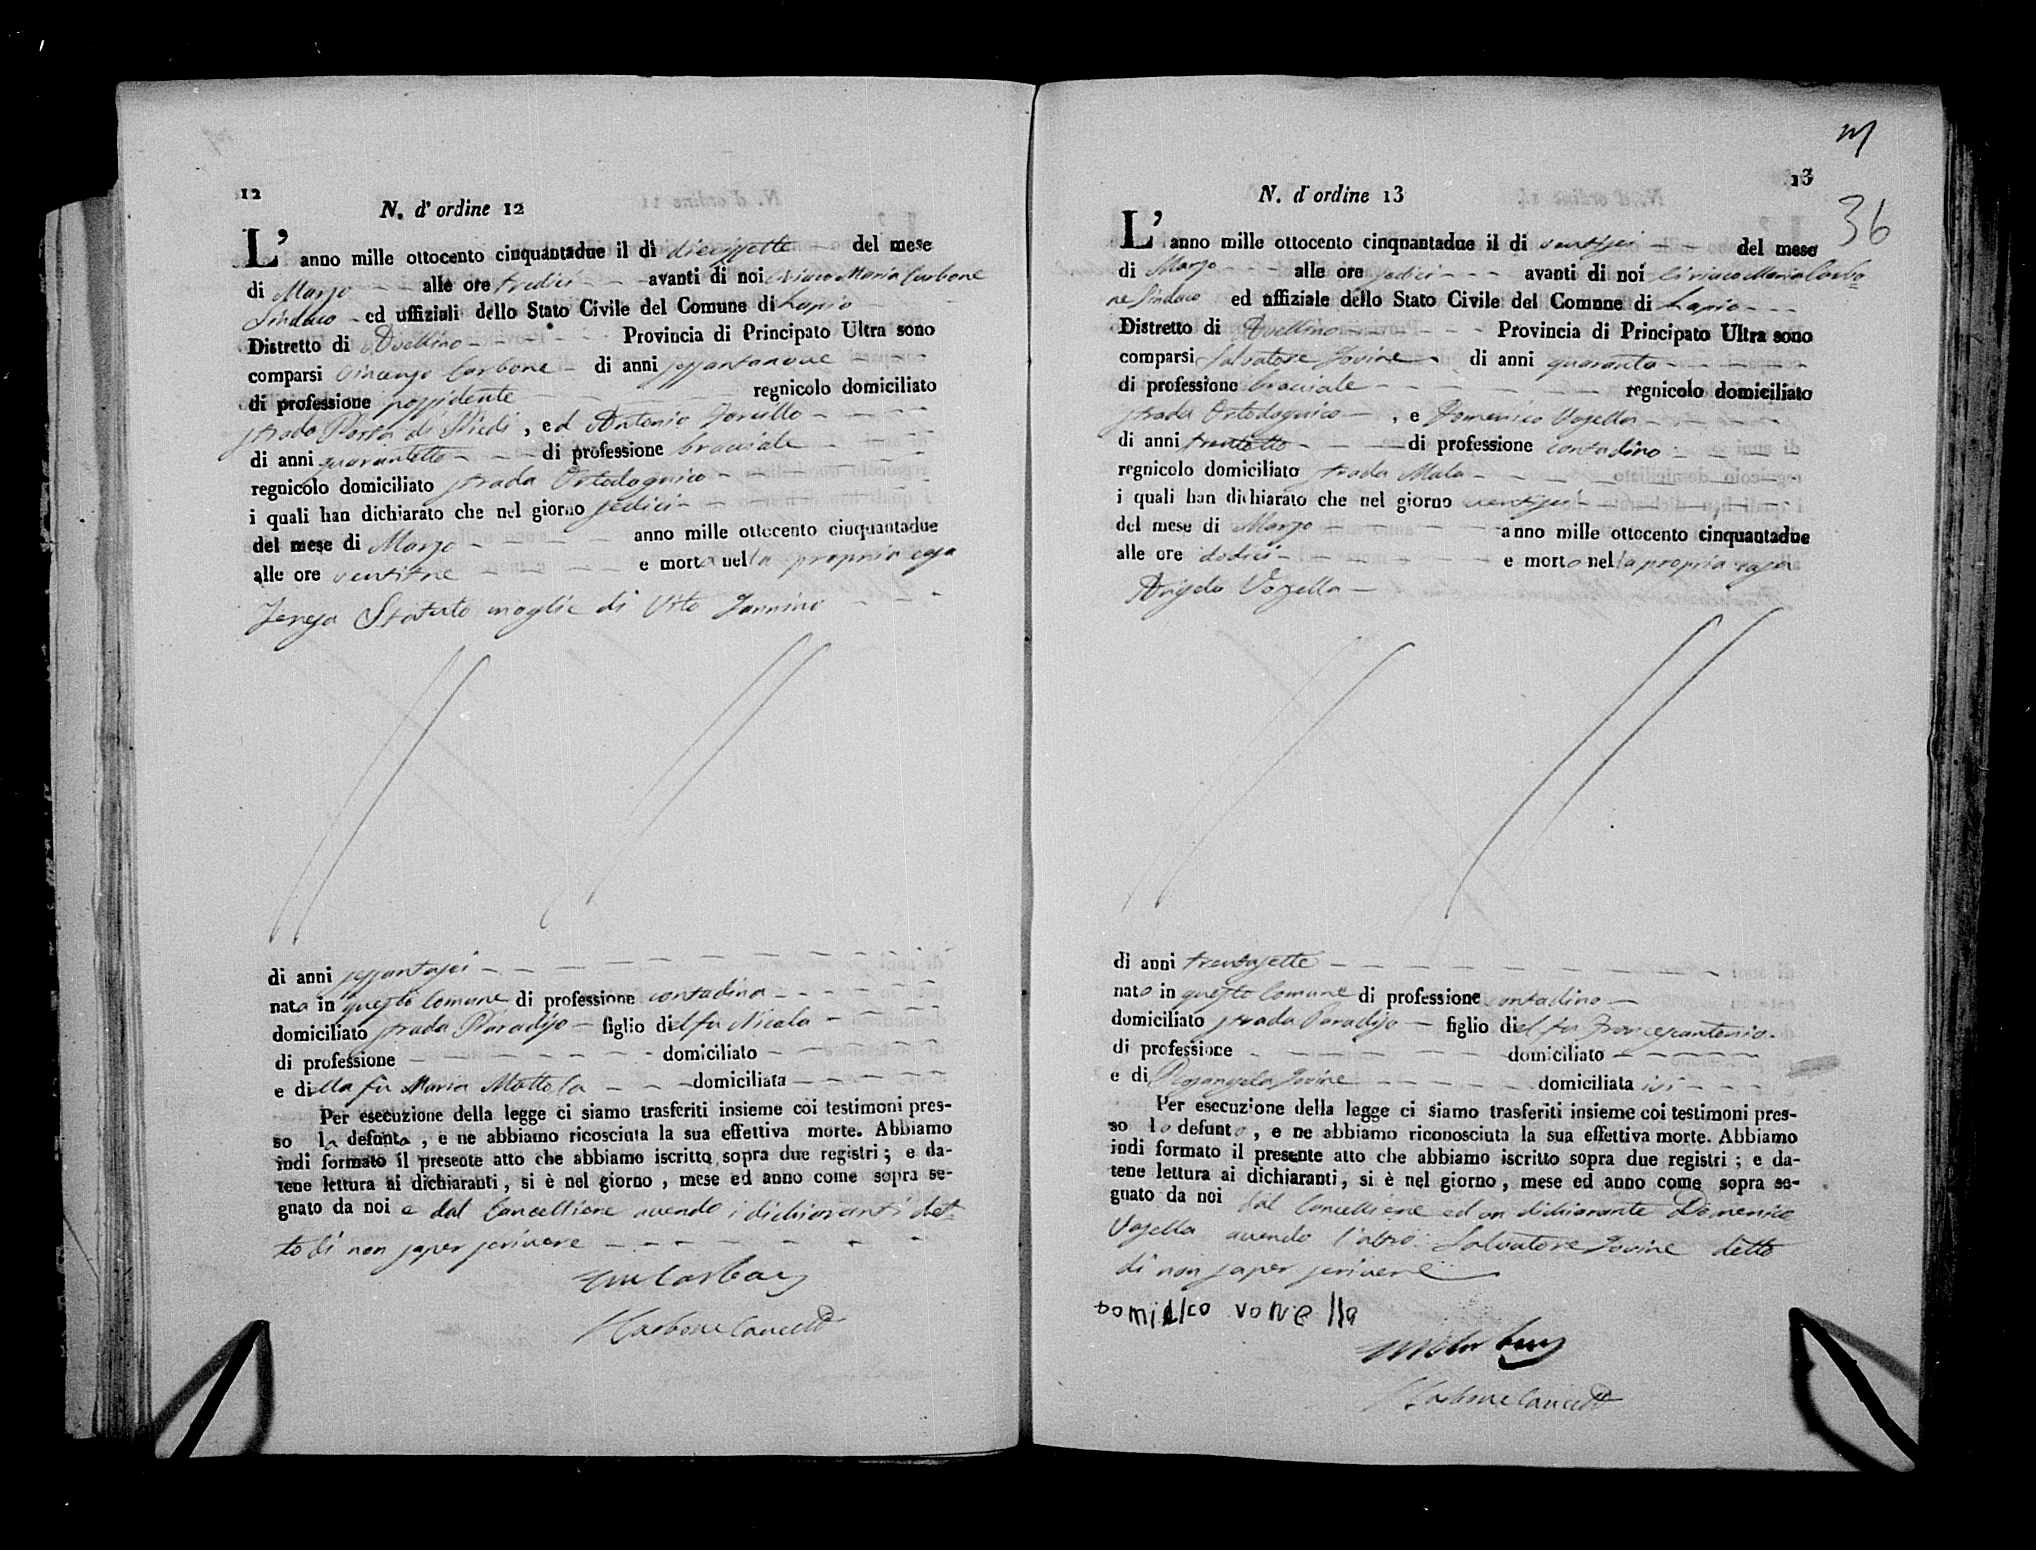 12
N. d' ordine 12
L' anno mille ottocento cinquantadue il dì diecissette del mese
di Marzo alle ore tredici avanti di noi Ciriaco Maria Carbone
Sindaco ed uffiziali dello Stato Civile del Comune di Lapio
Distretto di Avellino Provincia di Principato Ultra sono
comparsi Vincenzo Carbone di anni sessantanove
di professione possidente regnicolo domiciliato
strada Porta di Piedi, ed Antonio
di anni quarantotto di professione bracciale
regnicolo domiciliato strada Ortodoguico
i quali han dichiarato che nel giorno sedici
del mese di Marzo anno mille ottocento cinquantadue
alle ore ventitre e morta nella propria casa
Teresa Statuto moglie di Vito Jannino
di anni sessantasei
nata in questo Comune di professione contadina
domiciliato strada Paradiso figlio del fu Nicola
di professione domiciliato
e di lla fu Maria Mottola domiciliata
Per esecuzione della legge ci siamo trasferiti insieme coi testimoni pres-
so la defunta, e ne abbiamo riconosciuta la sua effettiva morte. Abbiamo
indi formato il presente atto che abbiamo iscritto sopra due registri; e da-
tene lettura ai dichiaranti, si è nel giorno, mese ed anno come sopra se-
gnato da noi e dal Cancelliere avendo i dichiaranti det-
to di non saper scrivere
Carbone Cancell
13
36
N. d' ordine 13
L' anno mille ottocento cinquantadue il di ventisei del mese
di Marzo alle ore sedici avanti di noi Ciriaco Maria Carbo=
ne Sindaco ed uffiziale dello Stato Civile del Comune di Lapio
Distretto di Avellino Provincia di Principato Ultra sono
comparsi Salvatore Iovine di anni quaranta
di professione bracciale regnicolo domiciliato
strada Ortodoguico, e Domenico Vozella
di anni trentotto di professione contadino
regnicolo domiciliato strada Mala
i quali han dichiarato che nel giorno ventisei
del mese di Marzo anno mille ottocento cinquantadue
alle ore dodici e morto nella propria casa
Angelo Vozella
di anni trentasette
nato in questo Comune di professione contadino
domiciliato strada Paradiso figlio del fu Francescantonio
di professione domiciliato
e di Rosangela Iovine domiciliata ivi
Per esecuzione della legge ci siamo trasferiti insieme coi testimoni pres-
so lo defunto, e ne abbiamo riconosciuta la sua effettiva morte. Abbiamo
indi formato il presente atto che abbiamo iscritto sopra due registri; e da-
tene lettura ai dichiaranti, si è nel giorno, mese ed anno come sopra se-
gnato da noi dal Cancelliere ed un dichiarante Domenico
Vozella avendo l'altro Salvatore Iovine detto
di non saper scrivere
Carbone Cancell